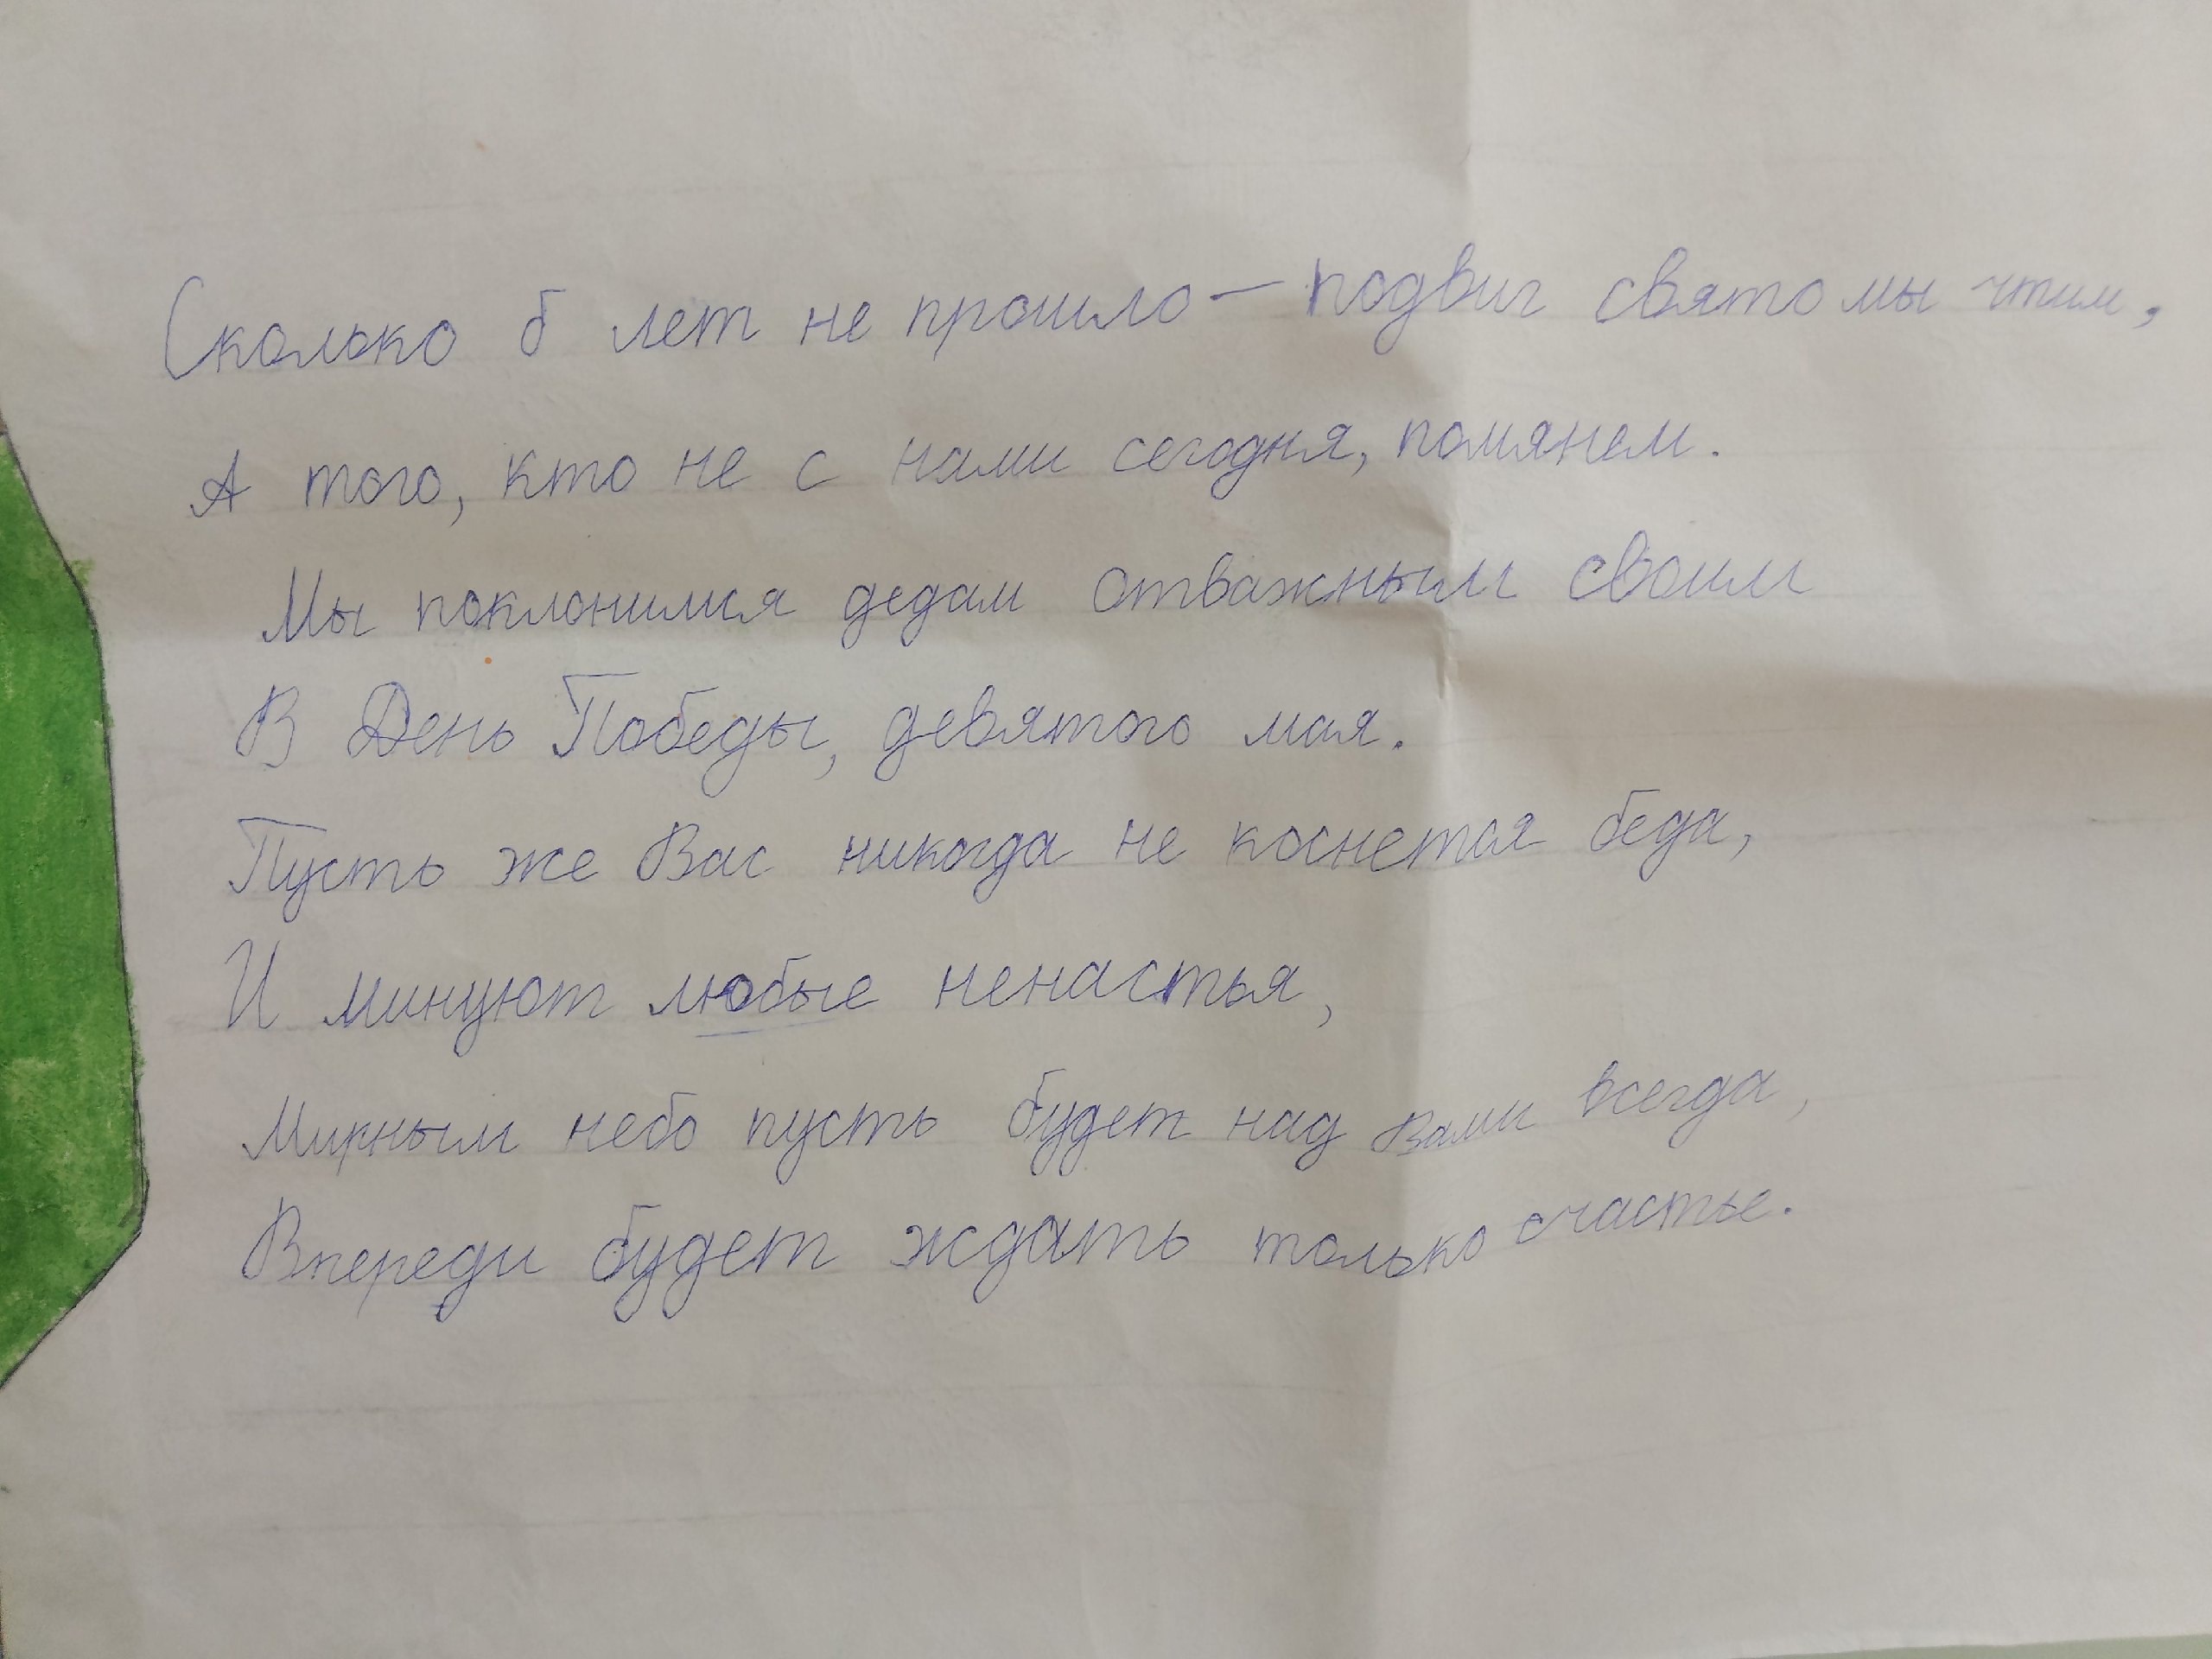 Сколько б лет не прошло – подвиг свято мы чтим,
А того, кто не с нами сегодня, помянем.
Мы поклонимся дедам отважным своим
В День Победы, девятого мая.
Пусть же Вас никогда не коснется беда,
И минуют любые ненастья,
Мирным небо пусть будет над Вами всегда,
Впереди будет ждать только счастье.